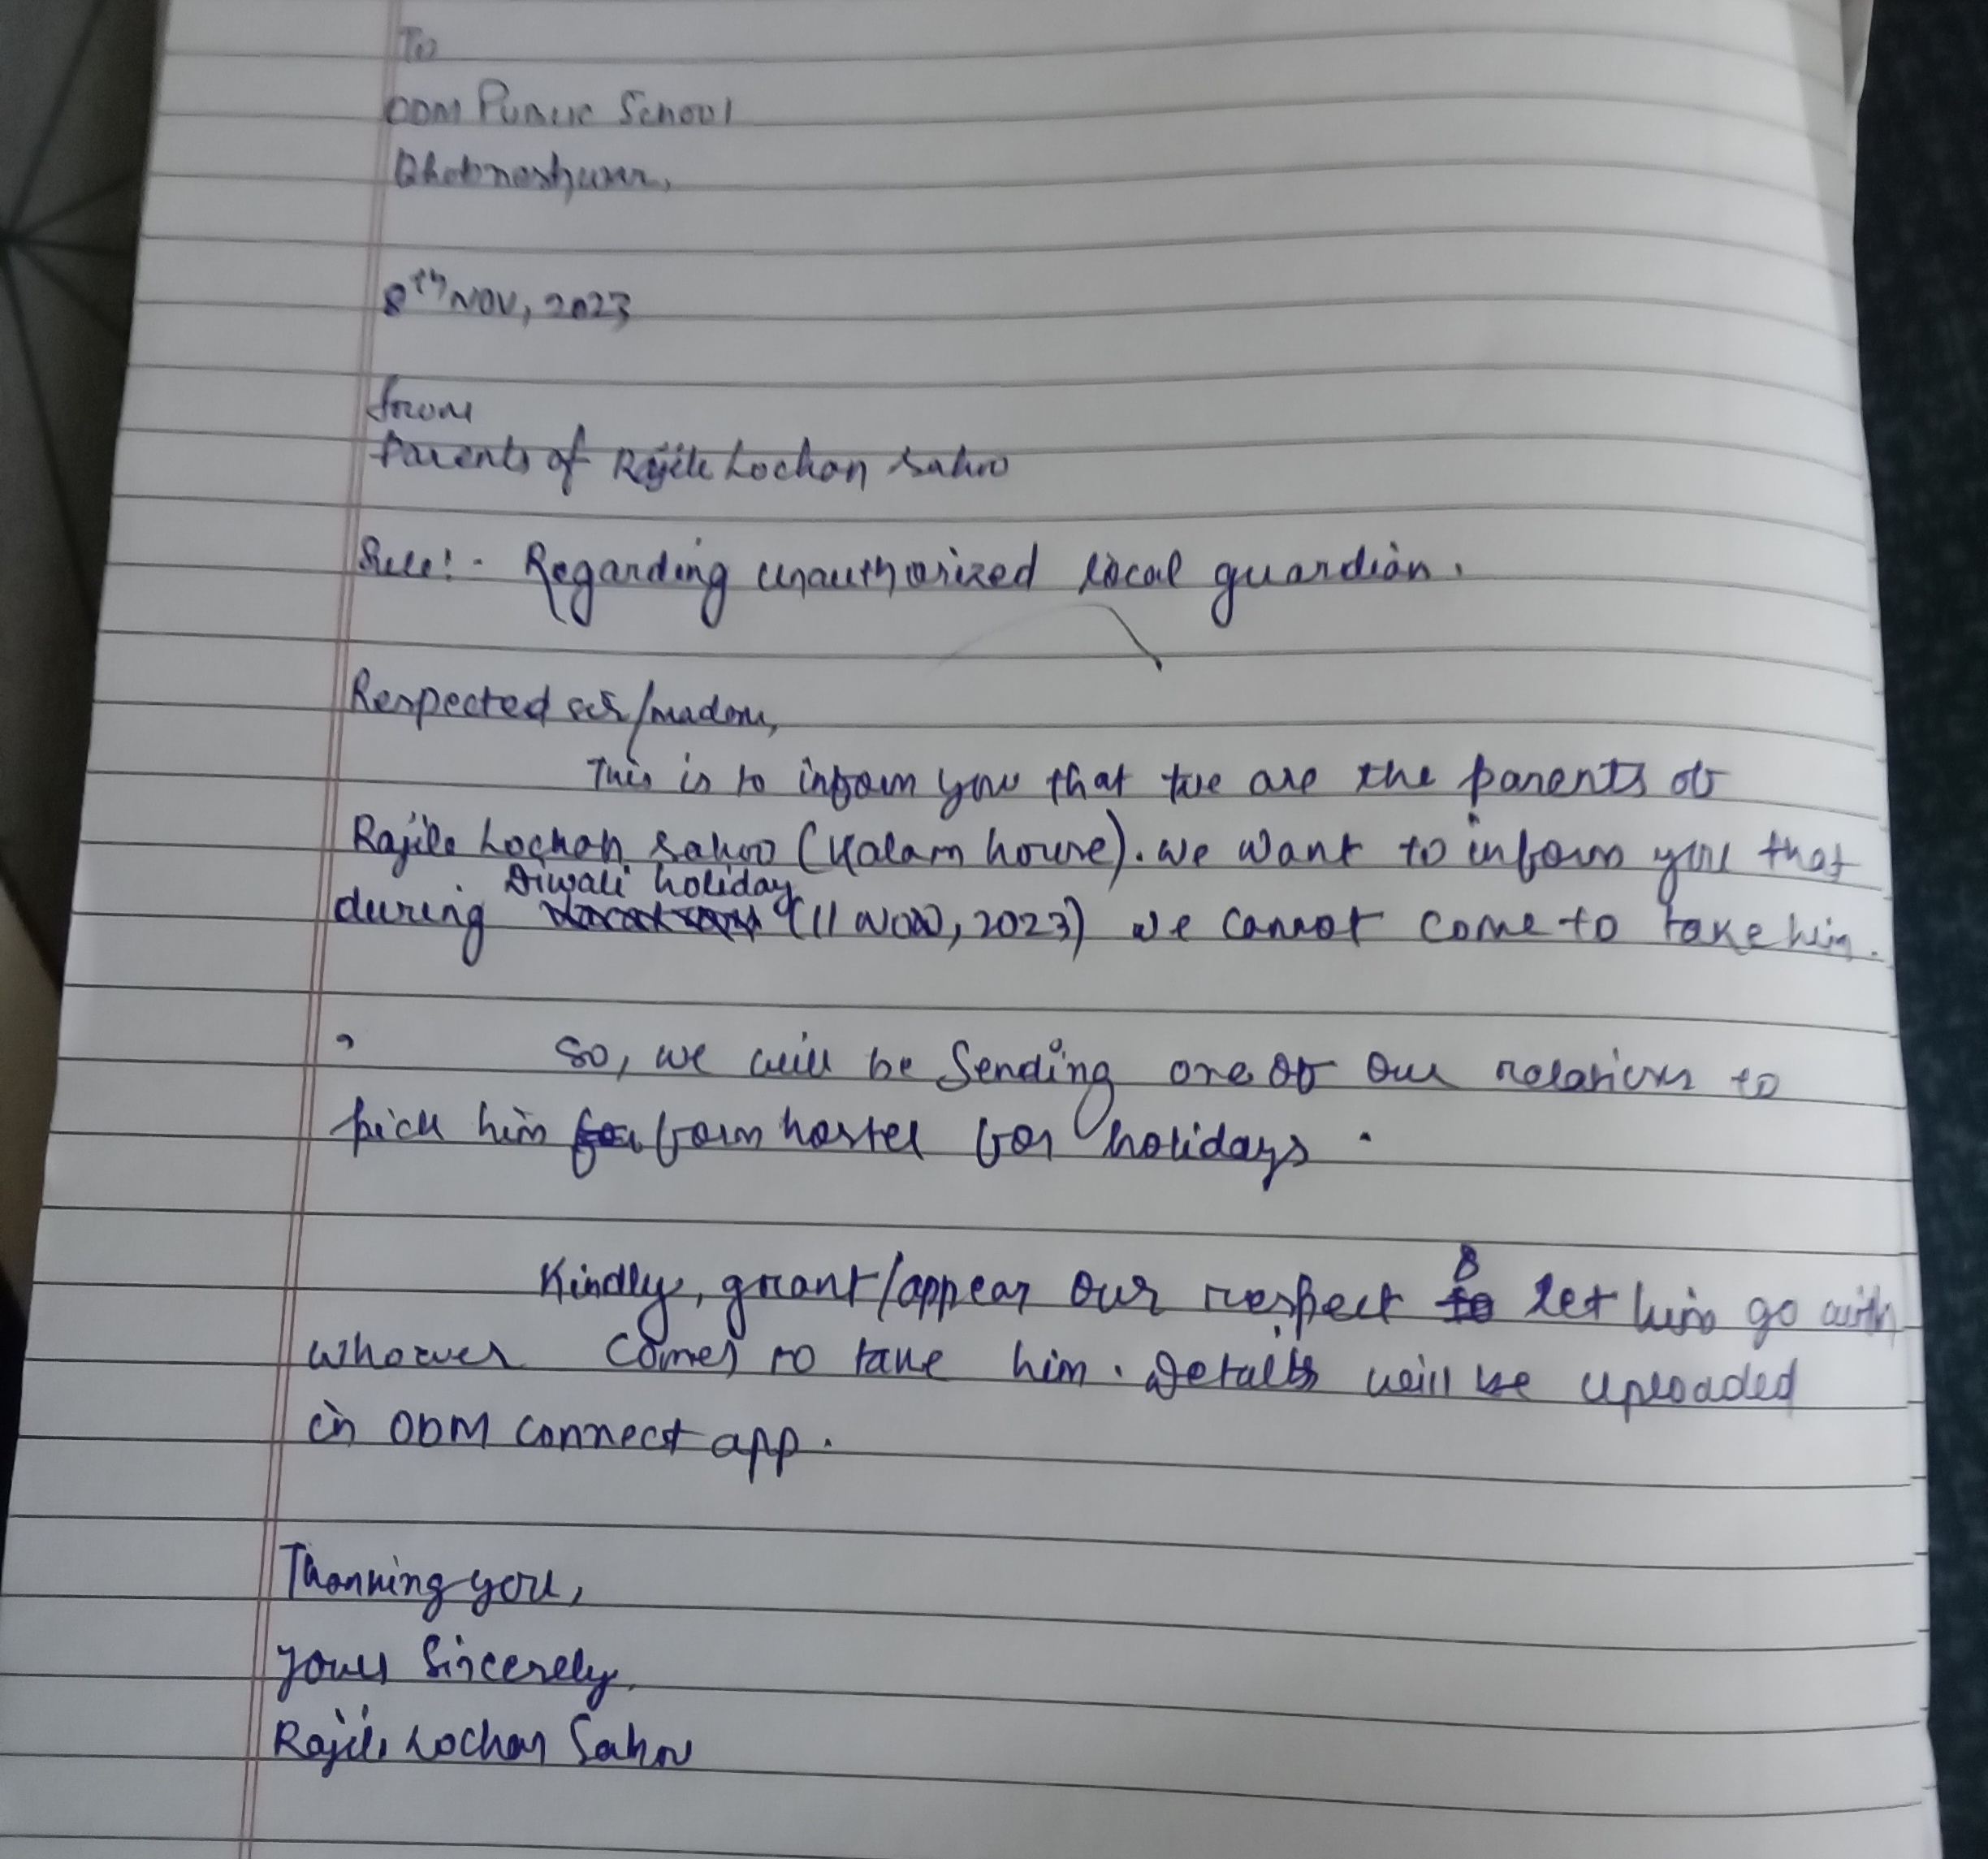 To
ODM Public School
Bhubneshwar,
8th NOV, 2023
from
Parents of Rajib Lochan Sahoo
Sub:- Regarding unauthorized local guardian.
Respected sir/madam,
This is to inform you that we are the parents of
Rajib Lochan Sahoo (Kalam house). we want to inform you that
during Diwali holiday (11 NOV, 2023) we cannot come to take him.
So, we will be Sending one of our relations to
pick him from hostel for holidays.
Kindly, grant/appear our respect & let him go with
whoever comes to take him. Details will be uploaded
in ODM connect app.
Thanking you,
yours Sincerely,
Rajib Lochan Sahoo